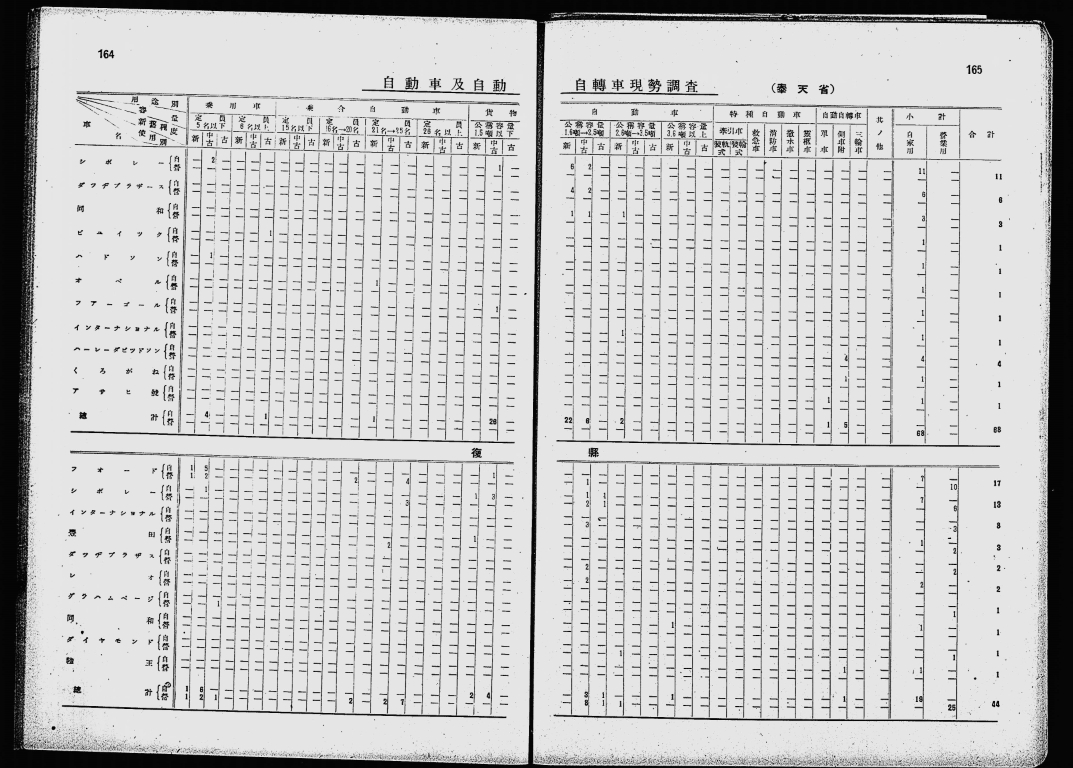 164
165
自動車及自動
自轉車現勢調査 (奉天省)
用途別
容量
新舊種度
車名 使用別
乘用車
乘合自動車
貨物
自動車
特種自動車
自動自轉車
其ノ他
小計
合計
定員5名以下
定員6名以上
定員15名以下
定員16名→20名
定員21名→25名
定員26名以上
公稱容量1.5噸以下
公稱容量1.6噸→2.5噸
公稱容量3.5噸以上
新 中古 古
牽引車
救急車
消防車
撒水車
靈柩車
單車
側車附
三輪車
自家用
營業用
シボレー 自 營 2 1 6 2 11 11
ダツヂブラザース 自 營 4 2 6 6
同和 自 營 1 1 1 3 3
ビユイツク 自 營 1 1 1
ハドソン 自 營 1 1 1
オペル 自 營 1 1 1
フアーゴール 自 營 1 1 1
インターナショナル 自 營 1 1
ハーレーダビツドソン 自 營 4 4 4
くろがね 自 營 1 1
アサヒ號 自 營 1 1 1
總計 自 營 4 1 1 26 22 6 2 1 5 68 68
復 縣
フオード 自 1 5 1 7 17
營 1 2 2 4 1 10
シボレー 自 1 1 3 1 1 7 13
營 3 2 1 6
インターナショナル 自 營 3 3 3
豊田 自 1 1 3
營 2 2
ダツヂブラザス 自 營 2 2 2
レオ 自 營 2 2 2
グラハムページ 自 營 1 1 1
同和 自 營 1 1 1
ダイヤモンド 自 營 1 1 1
陸王 自 營 1 1 1
總計 自 1 6 2 4 3 1 1 1 19 44
營 1 2 1 2 2 7 8 1 1 25